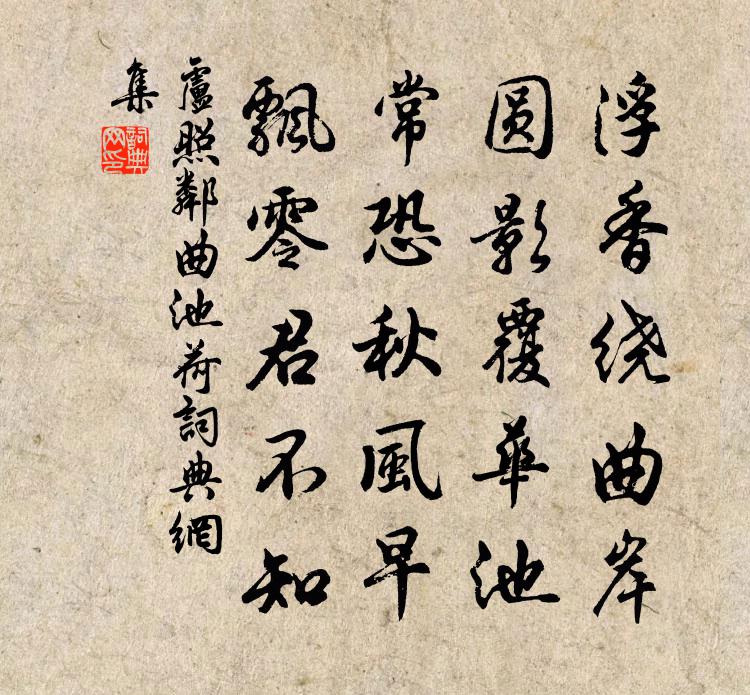 浮香绕曲岸
圆影覆華池
常恐秋風早
飄零君不知
盧照鄰曲池荷詞典網
集
詞典
网印